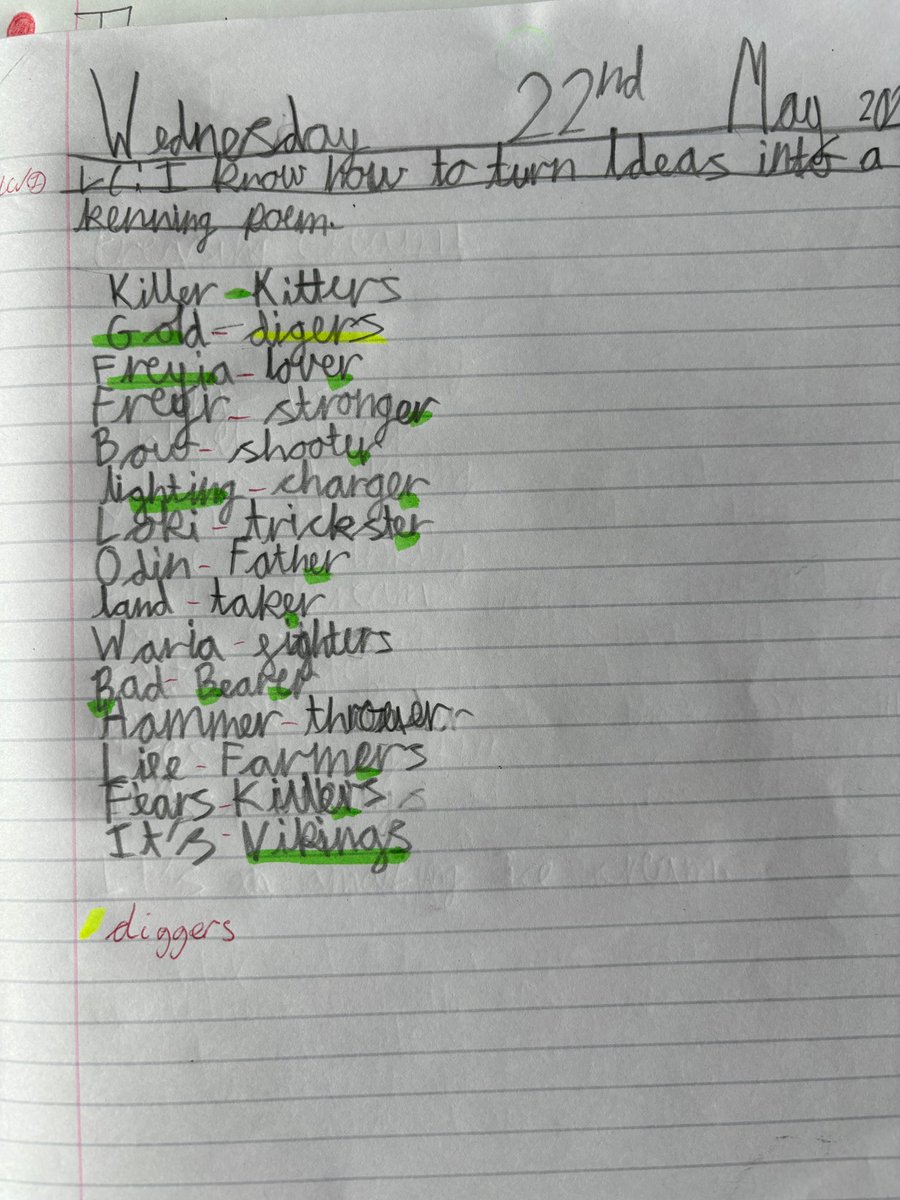 Wednesday 22nd May 202
LC: I know how to turn Ideas into a
kenning poem.
Killer-Kitters
Gold-digers
Freyja-lover
Freyr-stronger
Bow-shooter
lighting-charger
Loki-trickster
Odin-Father
land-taker
Waria-fighters
Bad-Bearer
Hammer-thrower
Life-Farmers
Fears-Killers
It's-Vikings
diggers